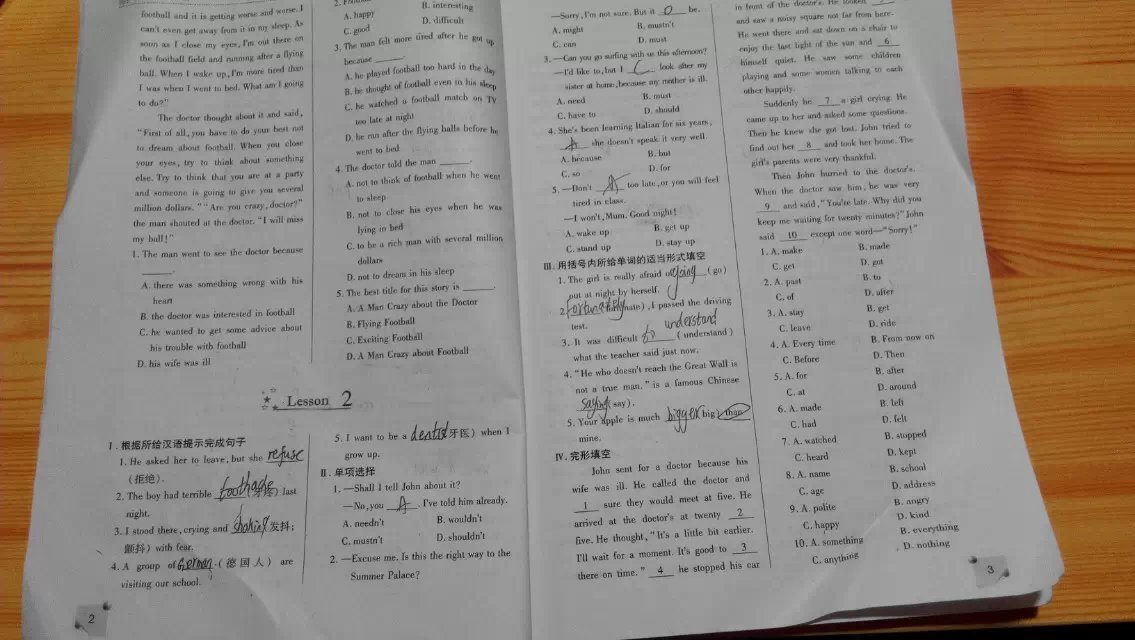 football and it is getting worse and worse. I
can't even get away from it in my sleep. As
soon as I close my eyes, I'm out there on
the football field and running after a flying
ball. When I wake up, I'm more tired than
I was when I went to bed. What am I going
to do?"
The doctor thought about it and said,
"First of all, you have to do your best not
to dream about football. When you close
your eyes, try to think about something
else. Try to think that you are at a party
and someone is going to give you several
million dollars." "Are you crazy, doctor?"
the man shouted at the doctor. "I will miss
my ball!"
1. The man went to see the doctor because
______.
A. there was something wrong with his
heart
B. the doctor was interested in football
C. he wanted to get some advice about
his trouble with football
D. his wife was ill
2.
A. happy
B. interesting
C. good
D. difficult
3. The man felt more tired after he got up
because ______.
A. he played football too hard in the day
B. he thought of football even in his sleep
C. he watched a football match on TV
too late at night
D. he ran after the flying balls before he
went to bed
4. The doctor told the man ______.
A. not to think of football when he went
to sleep
B. not to close his eyes when he was
lying in bed
C. to be a rich man with several million
dollars
D. not to dream in his sleep
5. The best title for this story is ______.
A. A Man Crazy about the Doctor
B. Flying Football
C. Exciting Football
D. A Man Crazy about Football
Lesson 2
Ⅰ. 根据所给汉语提示完成句子
1. He asked her to leave, but she refuse
(拒绝).
2. The boy had terrible toothache (牙疼) last
night.
3. I stood there, crying and shaking (发抖;
颤抖) with fear.
4. A group of German (德国人) are
visiting our school.
5. I want to be a dentist (牙医) when I
grow up.
Ⅱ. 单项选择
1. —Shall I tell John about it?
—No, you A. I've told him already.
A. needn't
B. wouldn't
C. mustn't
D. shouldn't
2. —Excuse me. Is this the right way to the
Summer Palace?
2
—Sorry, I'm not sure. But it be.
A. might
B. mustn't
C. can
D. must
3. —Can you go surfing with us this afternoon?
—I'd like to, but I C look after my
sister at home, because my mother is ill.
A. need
B. must
C. have to
D. should
4. She's been learning Italian for six years,
A she doesn't speak it very well.
A. because
B. but
C. so
D. for
5. —Don't A too late, or you will feel
tired in class.
—I won't, Mum. Good night!
A. wake up
B. get up
C. stand up
D. stay up
Ⅲ. 用括号内所给单词的适当形式填空
1. The girl is really afraid of going (go)
out at night by herself.
2. fortunately (fortunate), I passed the driving
test.
3. It was difficult to understand (understand)
what the teacher said just now.
4. "He who doesn't reach the Great Wall is
not a true man." is a famous Chinese
saying (say).
5. Your apple is much bigger (big) than
mine.
Ⅳ. 完形填空
John sent for a doctor because his
wife was ill. He called the doctor and
1 sure they would meet at five. He
arrived at the doctor's at twenty 2
five. He thought, "It's a little bit earlier.
I'll wait for a moment. It's good to 3
there on time." 4 he stopped his car
in front of the doctor's. He looked
and saw a noisy square not far from here.
He went there and sat down on a chair to
enjoy the last light of the sun and 6
himself quiet. He saw some children
playing and some women talking to each
other happily.
Suddenly he 7 a girl crying. He
came up to her and asked some questions.
Then he knew she got lost. John tried to
find out her 8 and took her home. The
girl's parents were very thankful.
Then John hurried to the doctor's.
When the doctor saw him, he was very
9 and said, "You're late. Why did you
keep me waiting for twenty minutes?" John
said 10 except one word—"Sorry!"
1. A. make
B. made
C. get
D. got
2. A. past
B. to
C. of
D. after
3. A. stay
B. get
C. leave
D. ride
4. A. Every time
B. From now on
C. Before
D. Then
5. A. for
B. after
C. at
D. around
6. A. made
B. left
C. had
D. felt
7. A. watched
B. stopped
C. heard
D. kept
8. A. name
B. school
C. age
D. address
9. A. polite
B. angry
C. happy
D. kind
10. A. something
B. everything
C. anything
D. nothing
3